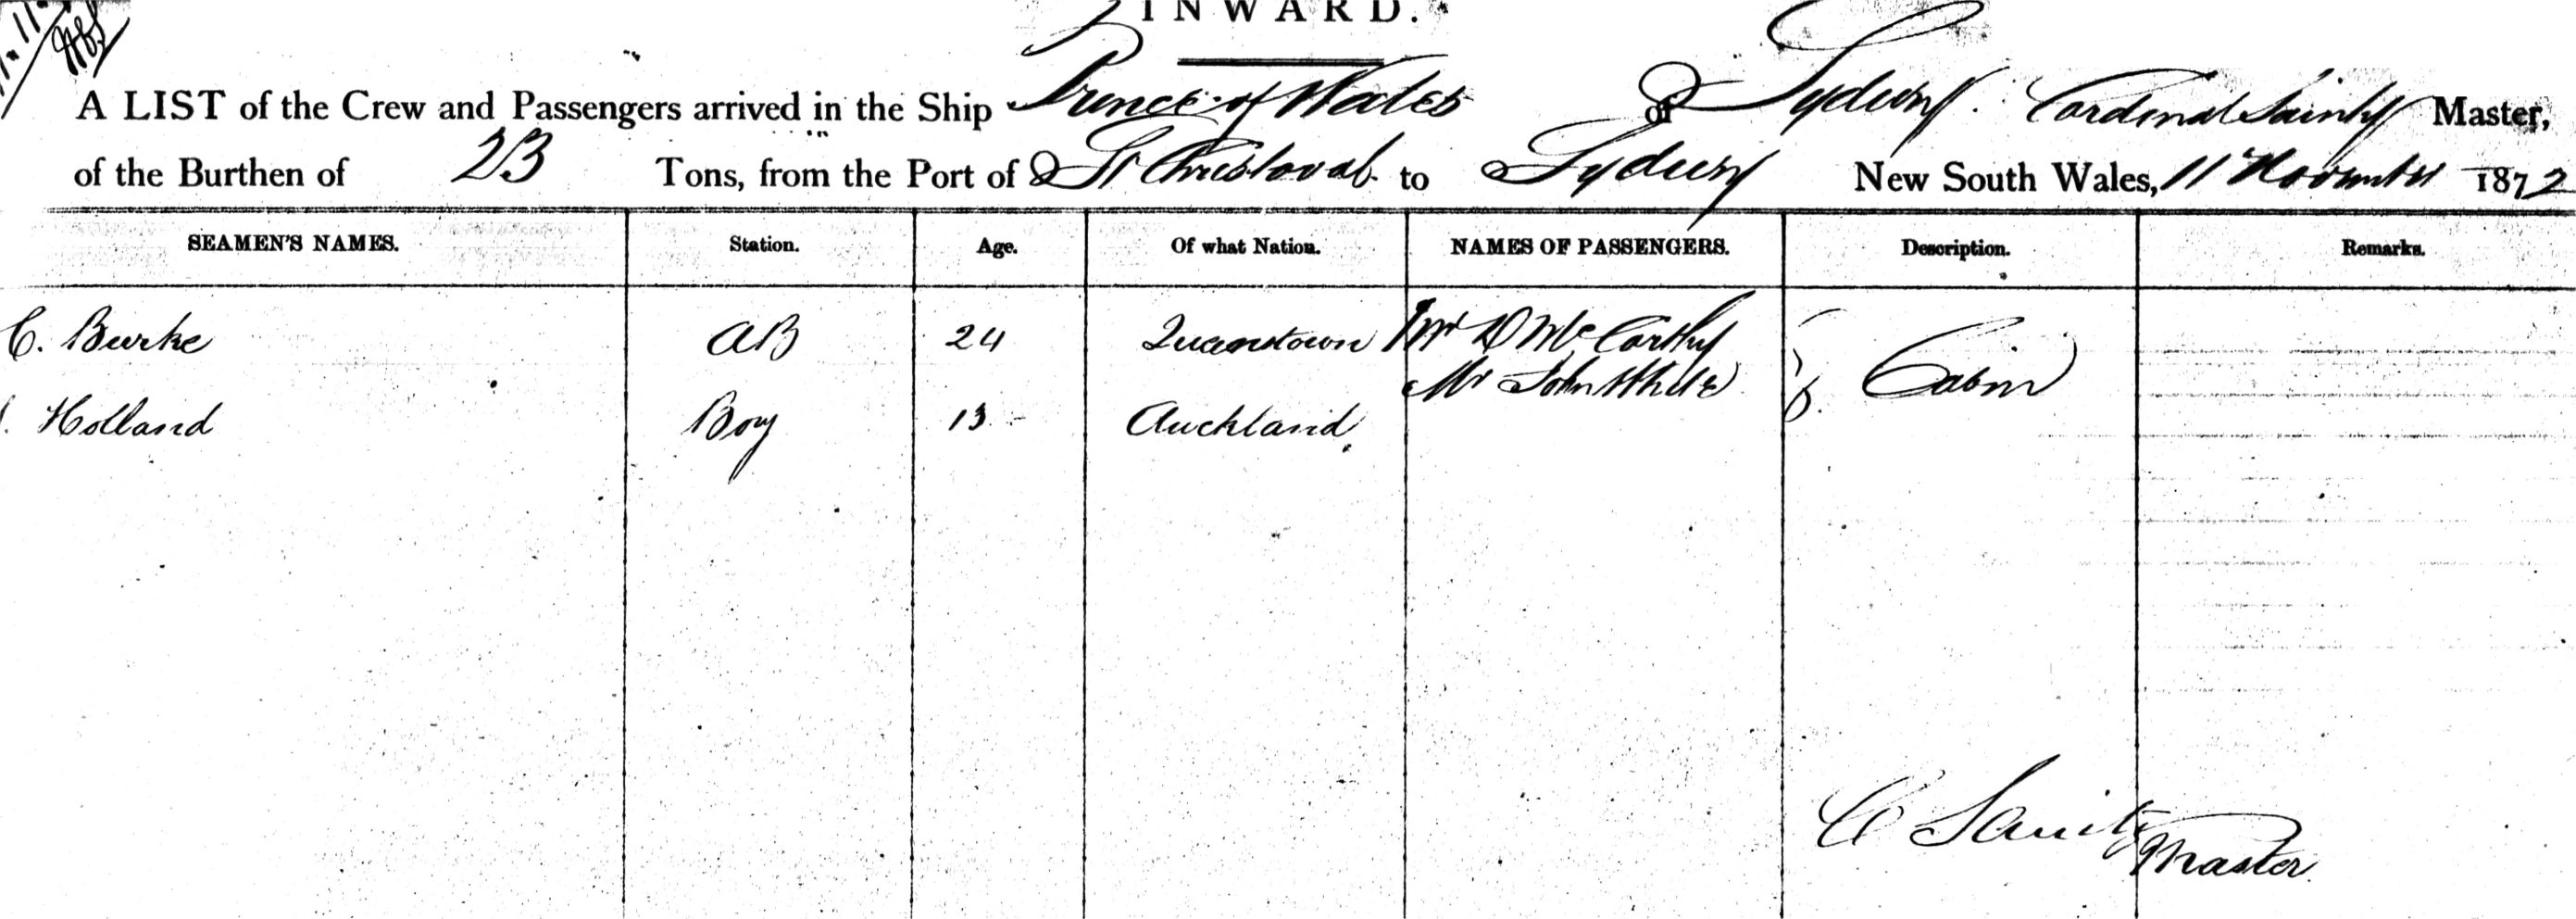 INWARD.
A LIST of the Crew and Passengers arrived in the Ship Prince of Wales of Sydney. Cardinal Sainty Master,
of the Burthen of 23 Tons, from the Port of St Christoval to Sydney New South Wales, 11 November 1872
SEAMEN'S NAMES. Station. Age. Of what Nation. NAMES OF PASSENGERS. Description. Remarks.
C. Burke AB 24 Queenstown Mr D McCarthy
Mr John White Cabin
Holland Boy 13 Auckland
C Sainty
Master